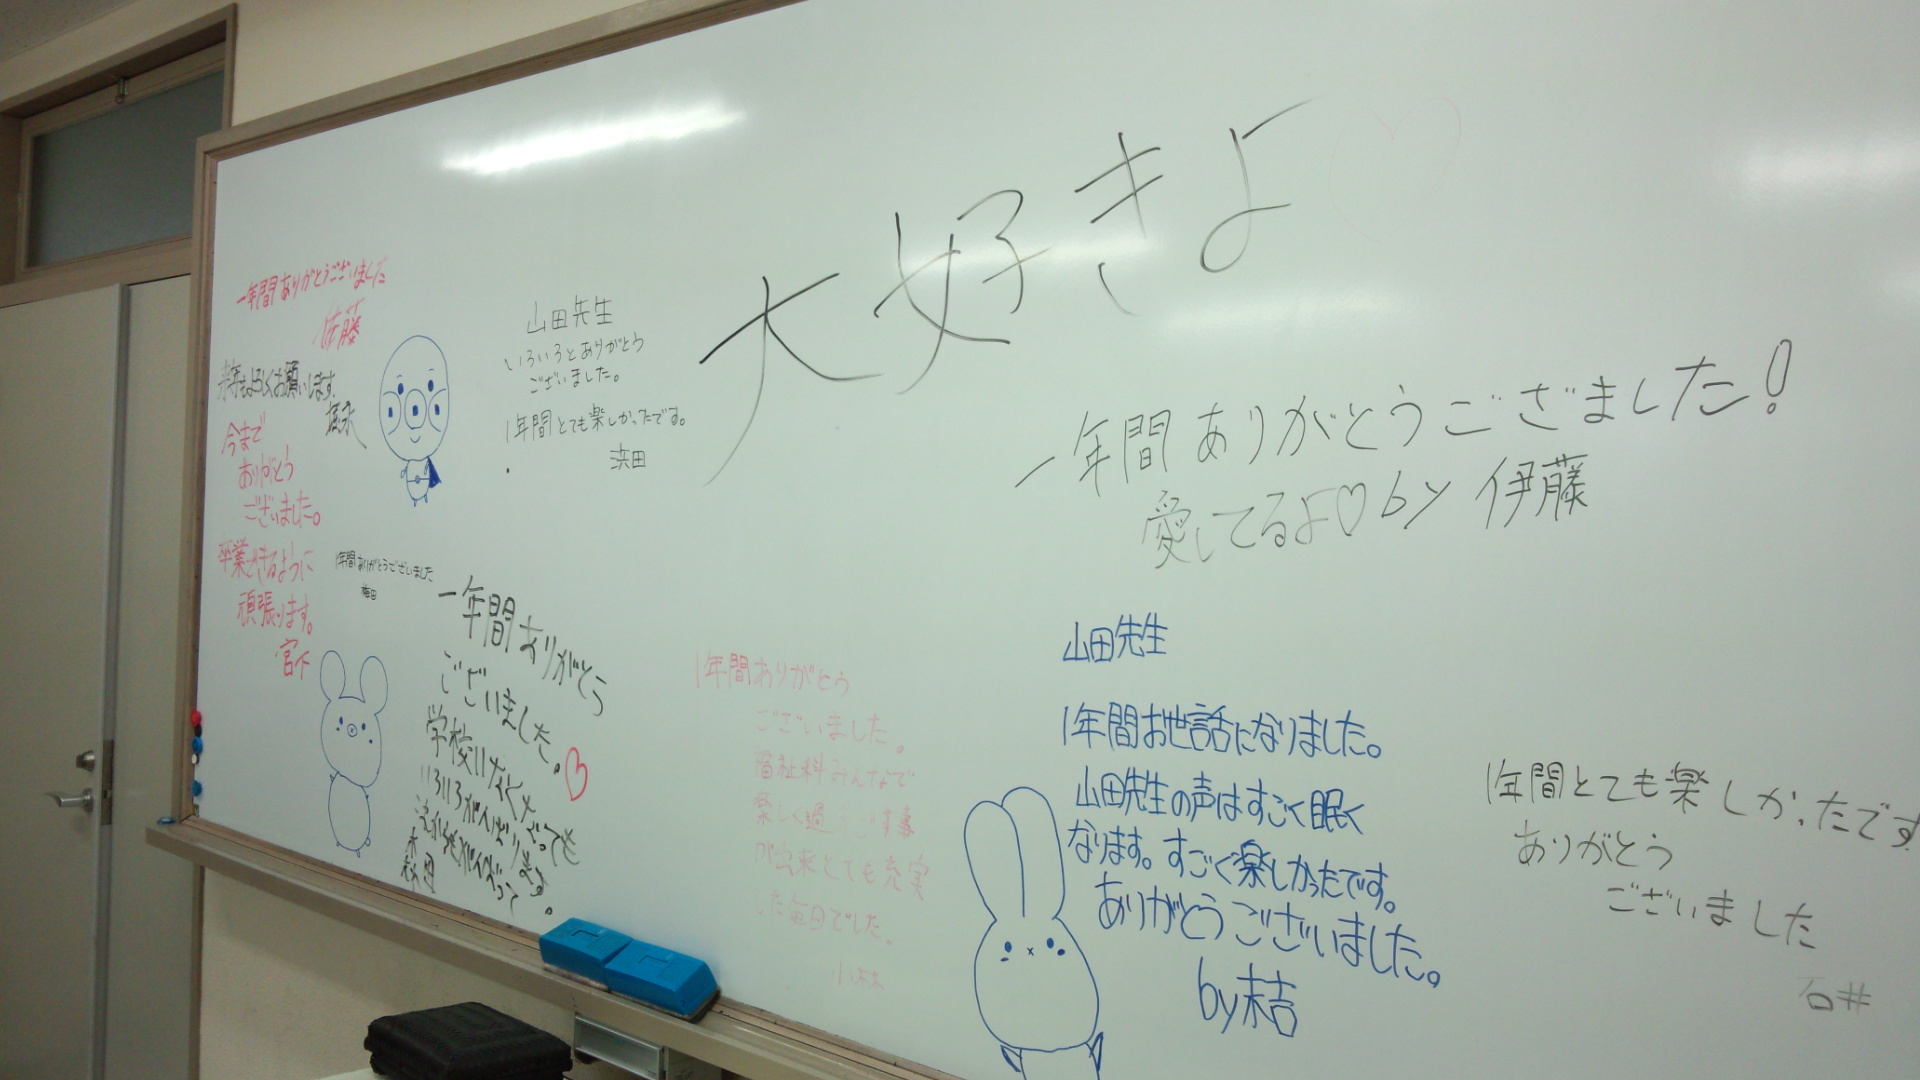 大好きよ♡
一年間ありがとうござました!
愛してるよ♡by 伊藤
一年間ありがとうございました
佐藤
来年もよろしくお願いします
今まで
ありがとう
ございました。
卒業できるように
頑張ります。
宮下
山田先生
いろいろとありがとう
ございました。
1年間とても楽しかったです。
浜田
1年間ありがとうございました
梅田
一年間ありがとう
ございました。♡
1年間ありがとう
ございました。
福祉科みんなで
楽しく過ごす事
が出来とても充実
した毎日でした。
小林
山田先生
1年間お世話になりました。
山田先生の声はすごく眠く
なります。すごく楽しかったです。
ありがとうございました。
by末吉
1年間とても楽しかったです
ありがとう
ございました
石井